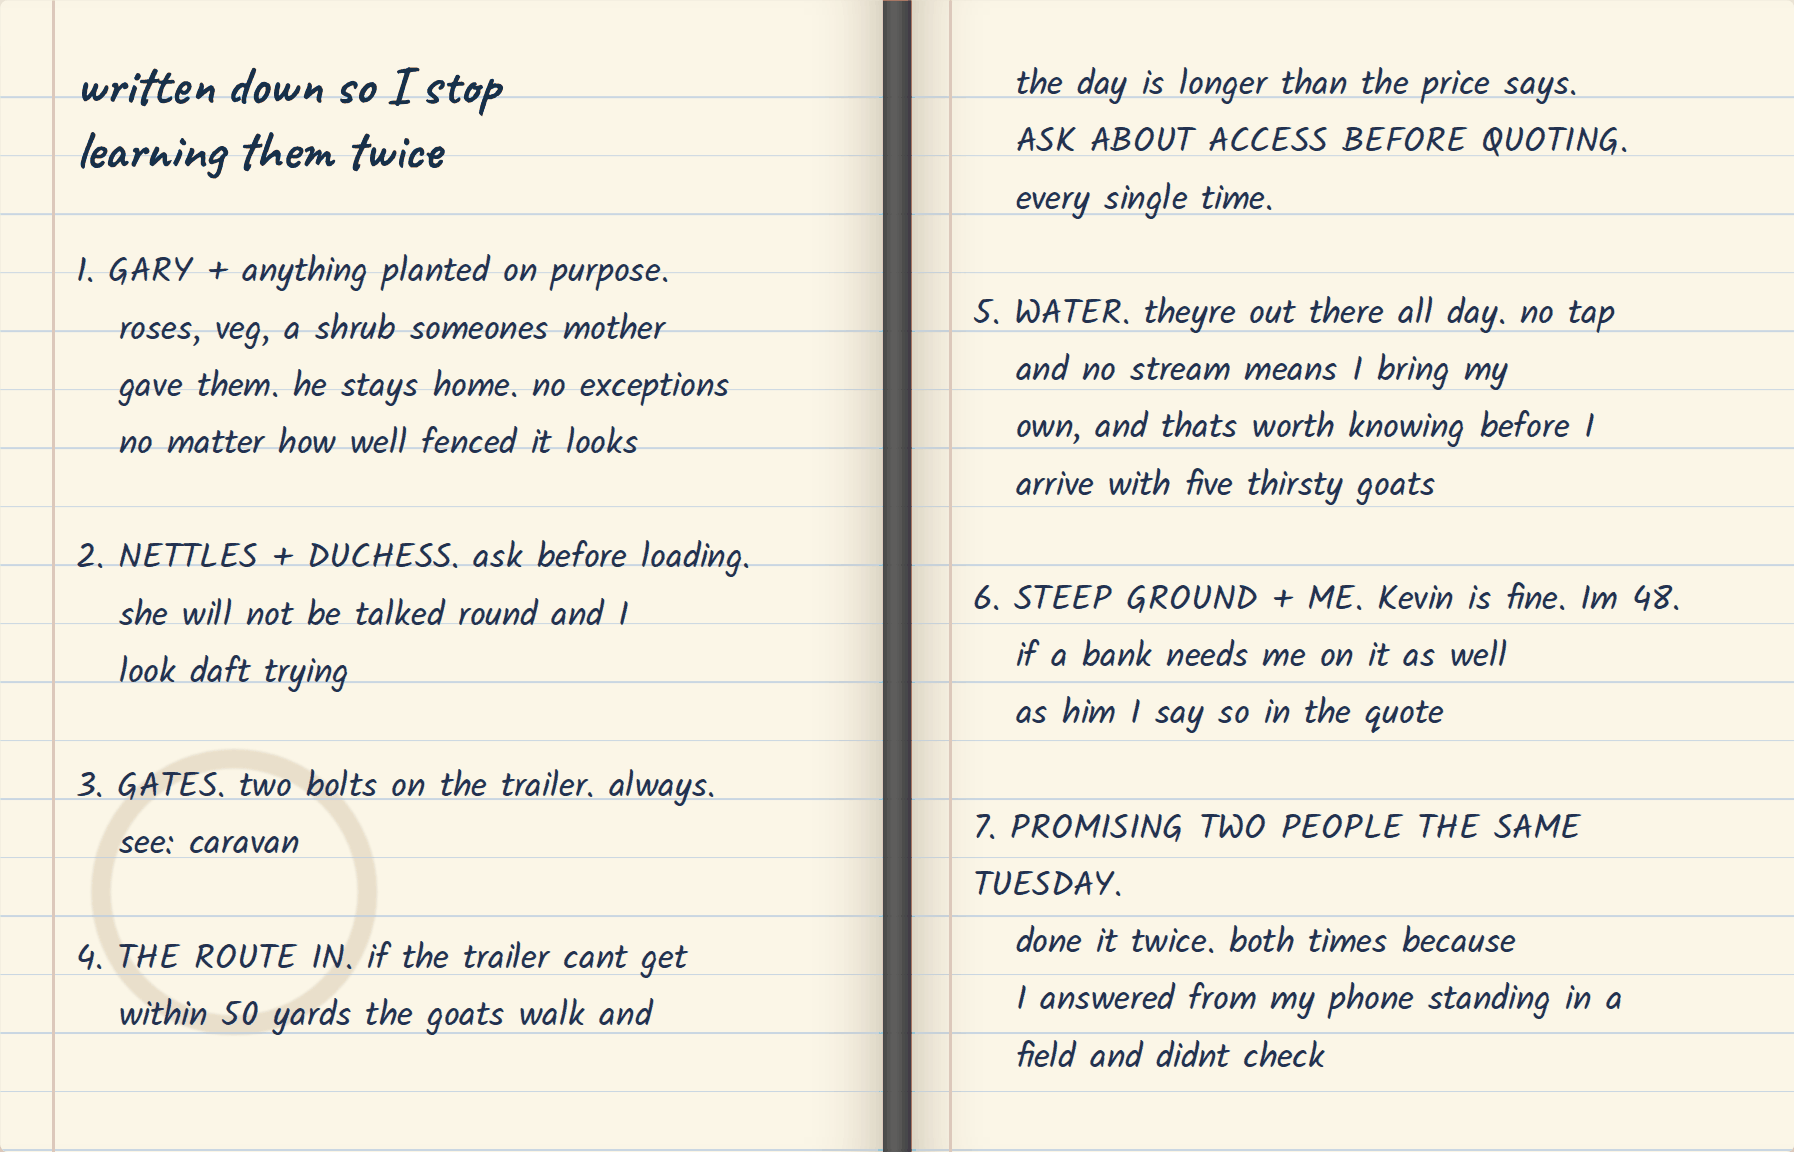 written down so I stop
learning them twice
1. GARY + anything planted on purpose.
roses, veg, a shrub someones mother
gave them. he stays home. no exceptions
no matter how well fenced it looks
2. NETTLES + DUCHESS. ask before loading.
she will not be talked round and I
look daft trying
3. GATES. two bolts on the trailer. always.
see: caravan
4. THE ROUTE IN. if the trailer cant get
within 50 yards the goats walk and
the day is longer than the price says.
ASK ABOUT ACCESS BEFORE QUOTING.
every single time.
5. WATER. theyre out there all day. no tap
and no stream means I bring my
own, and thats worth knowing before I
arrive with five thirsty goats
6. STEEP GROUND + ME. Kevin is fine. Im 48.
if a bank needs me on it as well
as him I say so in the quote
7. PROMISING TWO PEOPLE THE SAME
TUESDAY.
done it twice. both times because
I answered from my phone standing in a
field and didnt check